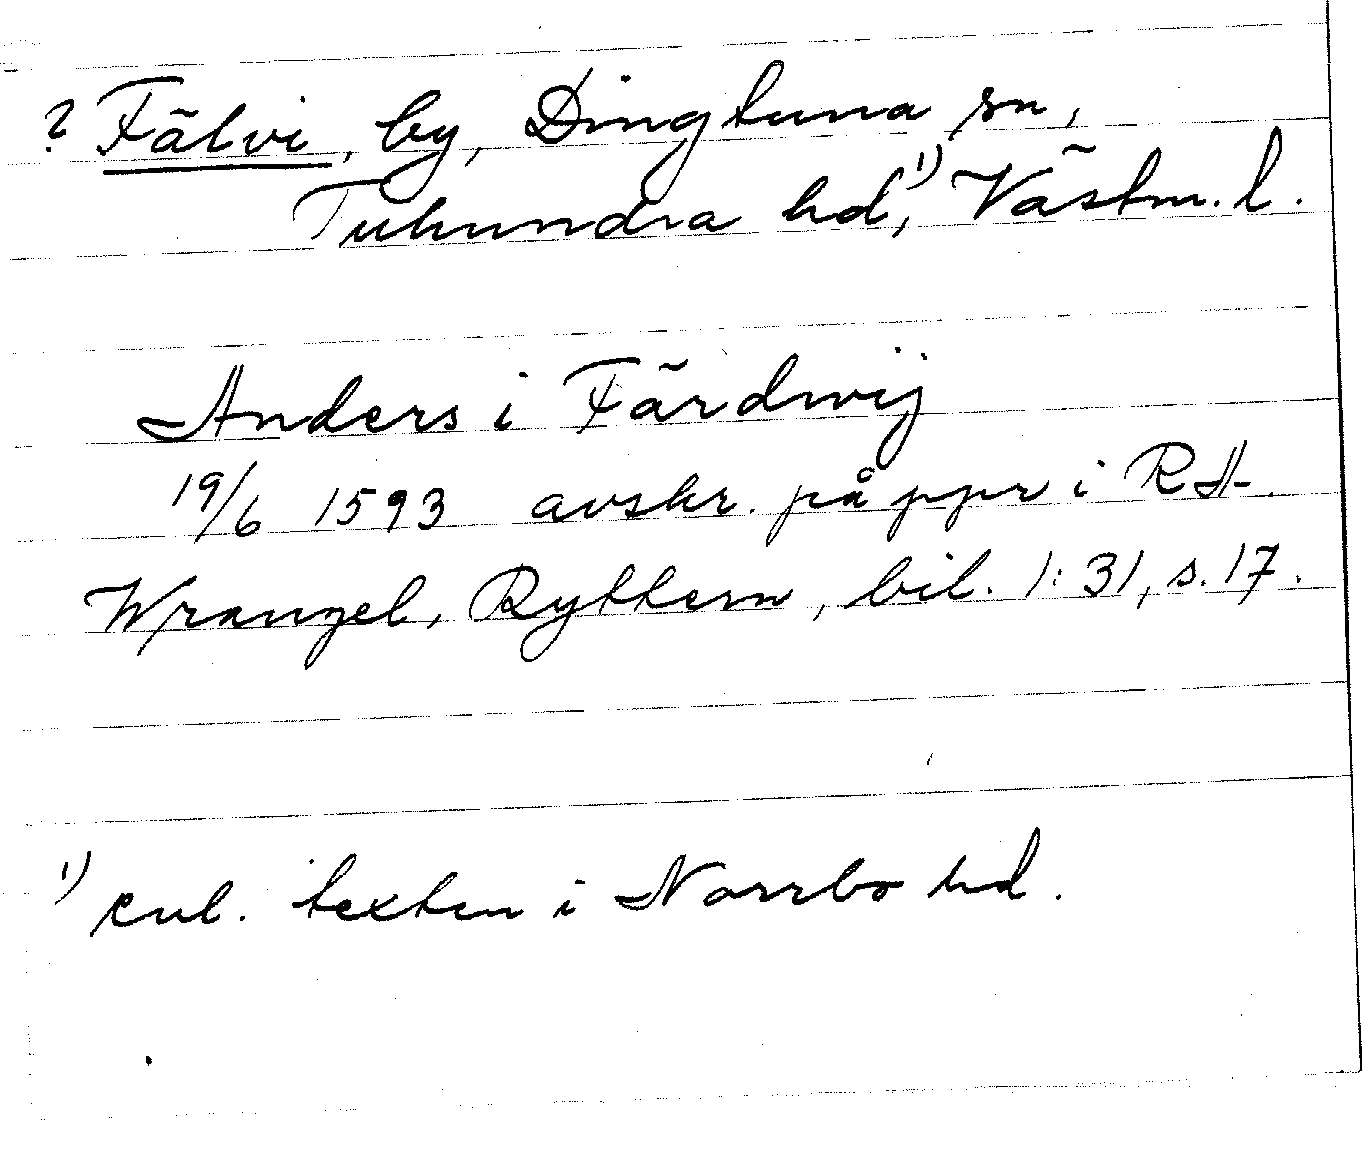 ? Fälvi, by, Dingtuna sn,
Tuhundra hd,¹⁾ Västm. l.
Anders i Färdwij
19/6 1593 avskr. på ppr i RA
Wrangel, Ryttern, bil. 1:31, s. 17.
¹⁾ enl. texten i Norrbo hd.